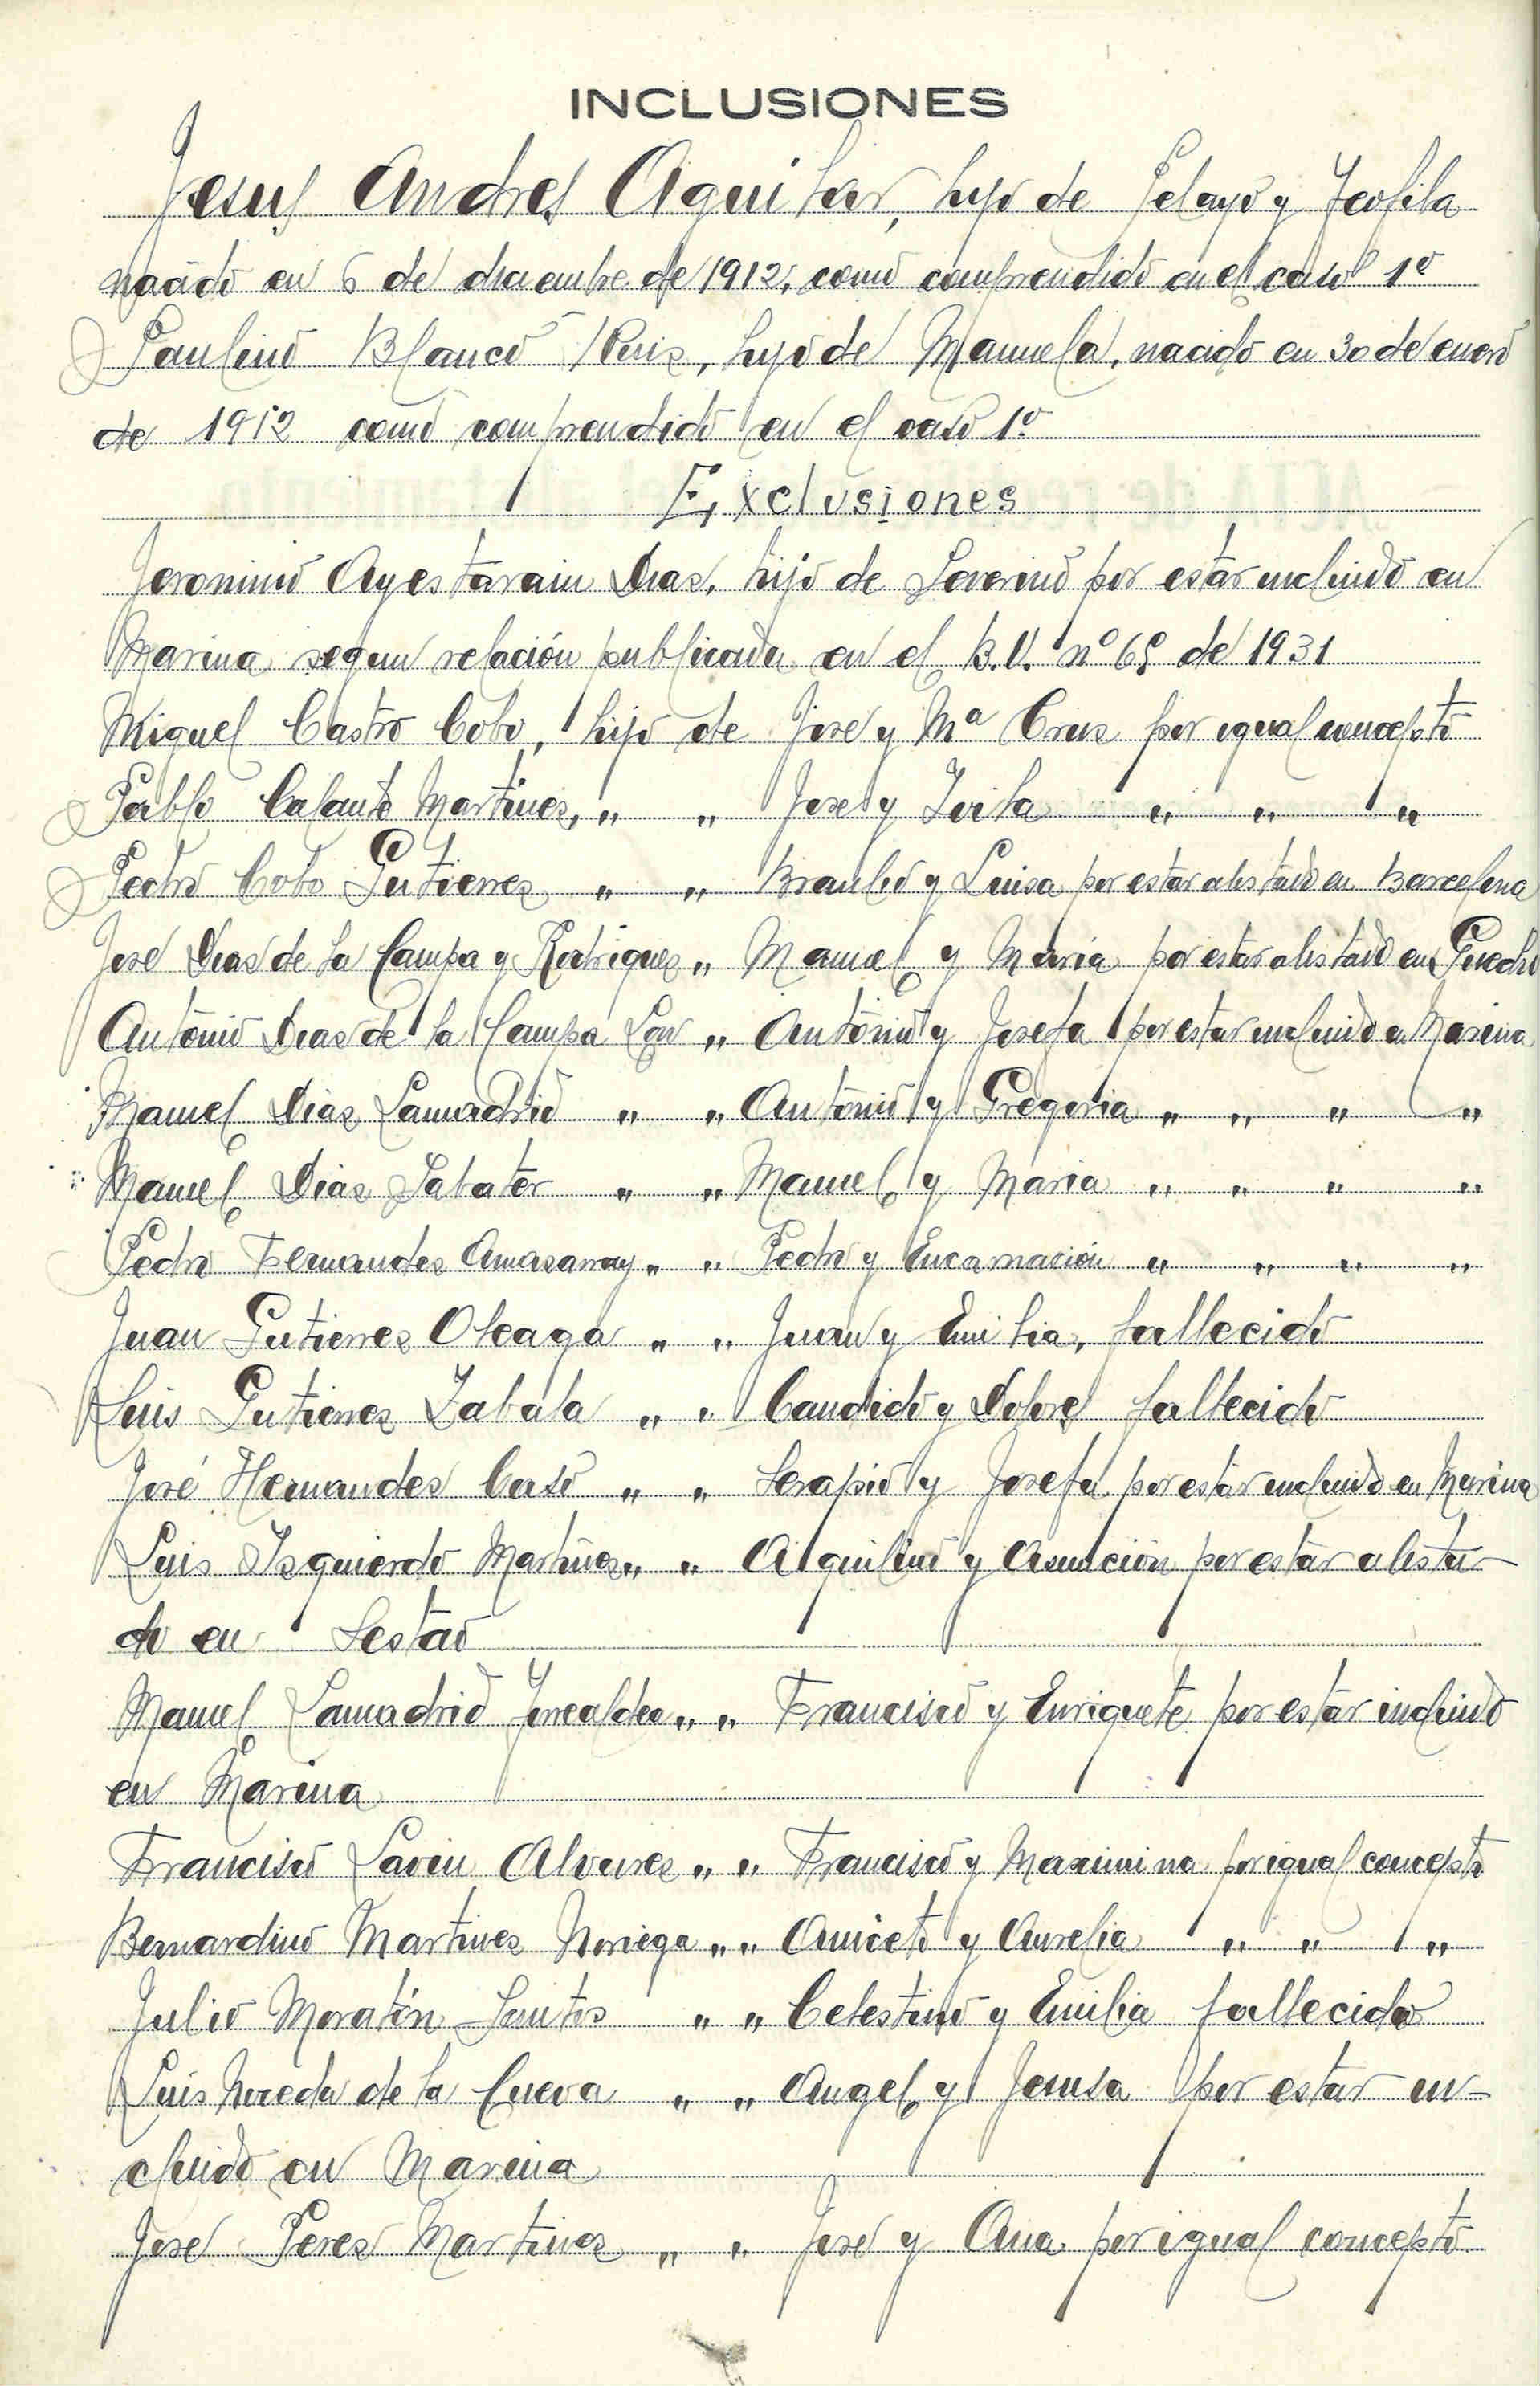 INCLUSIONES
Jesus Andres Aguilar, hijo de Pelayo y Teofila
nacido en 6 de diciembre de 1912, como comprendido en el caso 1º
Paulino Blanco Ruiz, hijo de Manuela, nacido en 30 de enero
de 1912 como comprendido en el caso 1º
Exclusiones
Jeronimo Ayestarain Dias, hijo de Severino por estar incluido en
Marina segun relación publicada en el B.O. nº 65 de 1931
Miguel Castro Cobo, hijo de Jose y Mª Cruz por igual concepto
Pablo Calante Martinez, " " Jose y Zoila " " "
Pedro Cobo Gutierrez " " Braulio y Luisa por estar alistado en Barcelona
José Dias de la Campa y Rodriguez " Manuel y Maria por estar alistado en Guecho
Antonio Dias de la Campa " Antonio y Josefa por estar incluido en Marina
Manuel Dias Lamadrid " " Antonio y Gregoria " " " "
Manuel Dias Sabater " " Manuel y Maria " " " "
Pedro Fernandez " " Pedro y Encarnación " " " "
Juan Gutierrez Oleaga " " Juan y Emilia, fallecido
Luis Gutierrez Zabala " " Candido y Dolores fallecido
José Hernandes Caso " " Serapio y Josefa por estar incluido en Marina
Luis Izquierdo Martinez " " Aquilino y Asuncion por estar alista-
do en Sestao
Manuel Lamadrid Torrealdea " " Francisco y Enriqueta por estar incluido
en Marina
Francisco Lavin Alvarez " " Francisco y Maximina por igual concepto
Bernardino Martinez Noriega " " Aniceto y Aurelia " " "
Julio Moratón Santos " " Celestino y Emilia fallecido
Luis Noreda de la Cueva " " Angel y Jesusa por estar in-
cluido en Marina
José Perez Martinez " " José y Ana por igual concepto